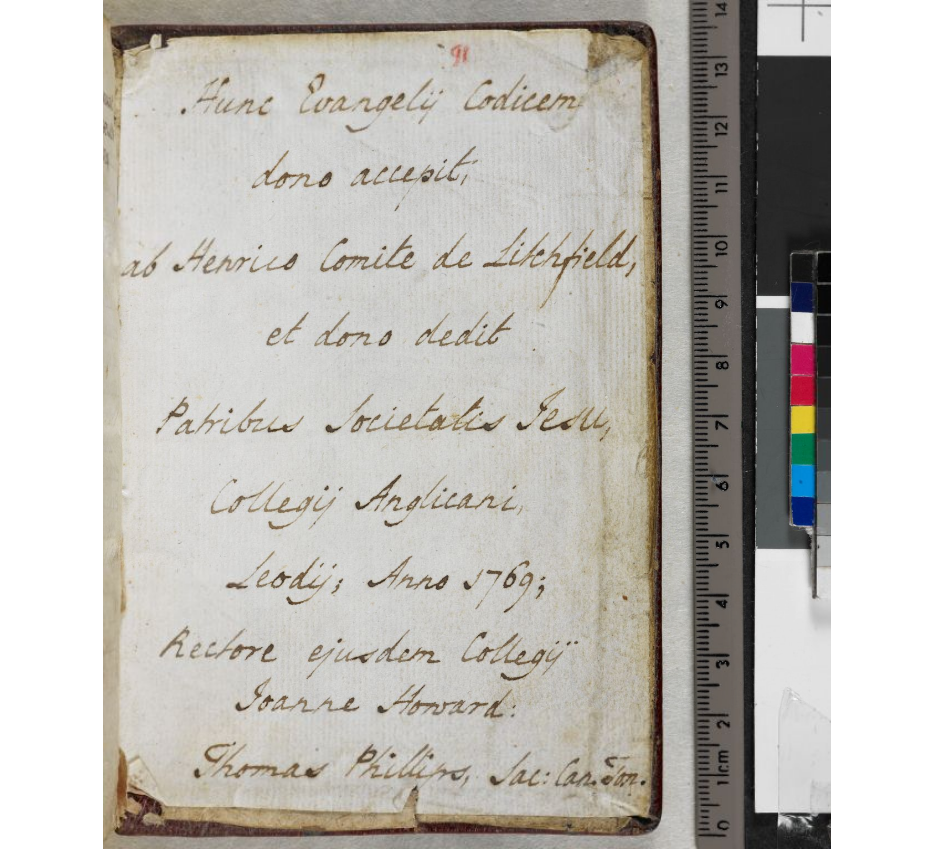 91
Hunc Evangelij Codicem
dono accepit,
ab Henrico Comite de Litchfield,
et dono dedit
Patribus Societatis Jesu,
Collegij Anglicani,
Leodij; Anno 1769;
Rectore ejusdem Collegij
Joanne Howard:
Thomas Phillips, Sac: Can. Ton.
0 1cm 2 3 4 5 6 7 8 9 10 11 12 13 14